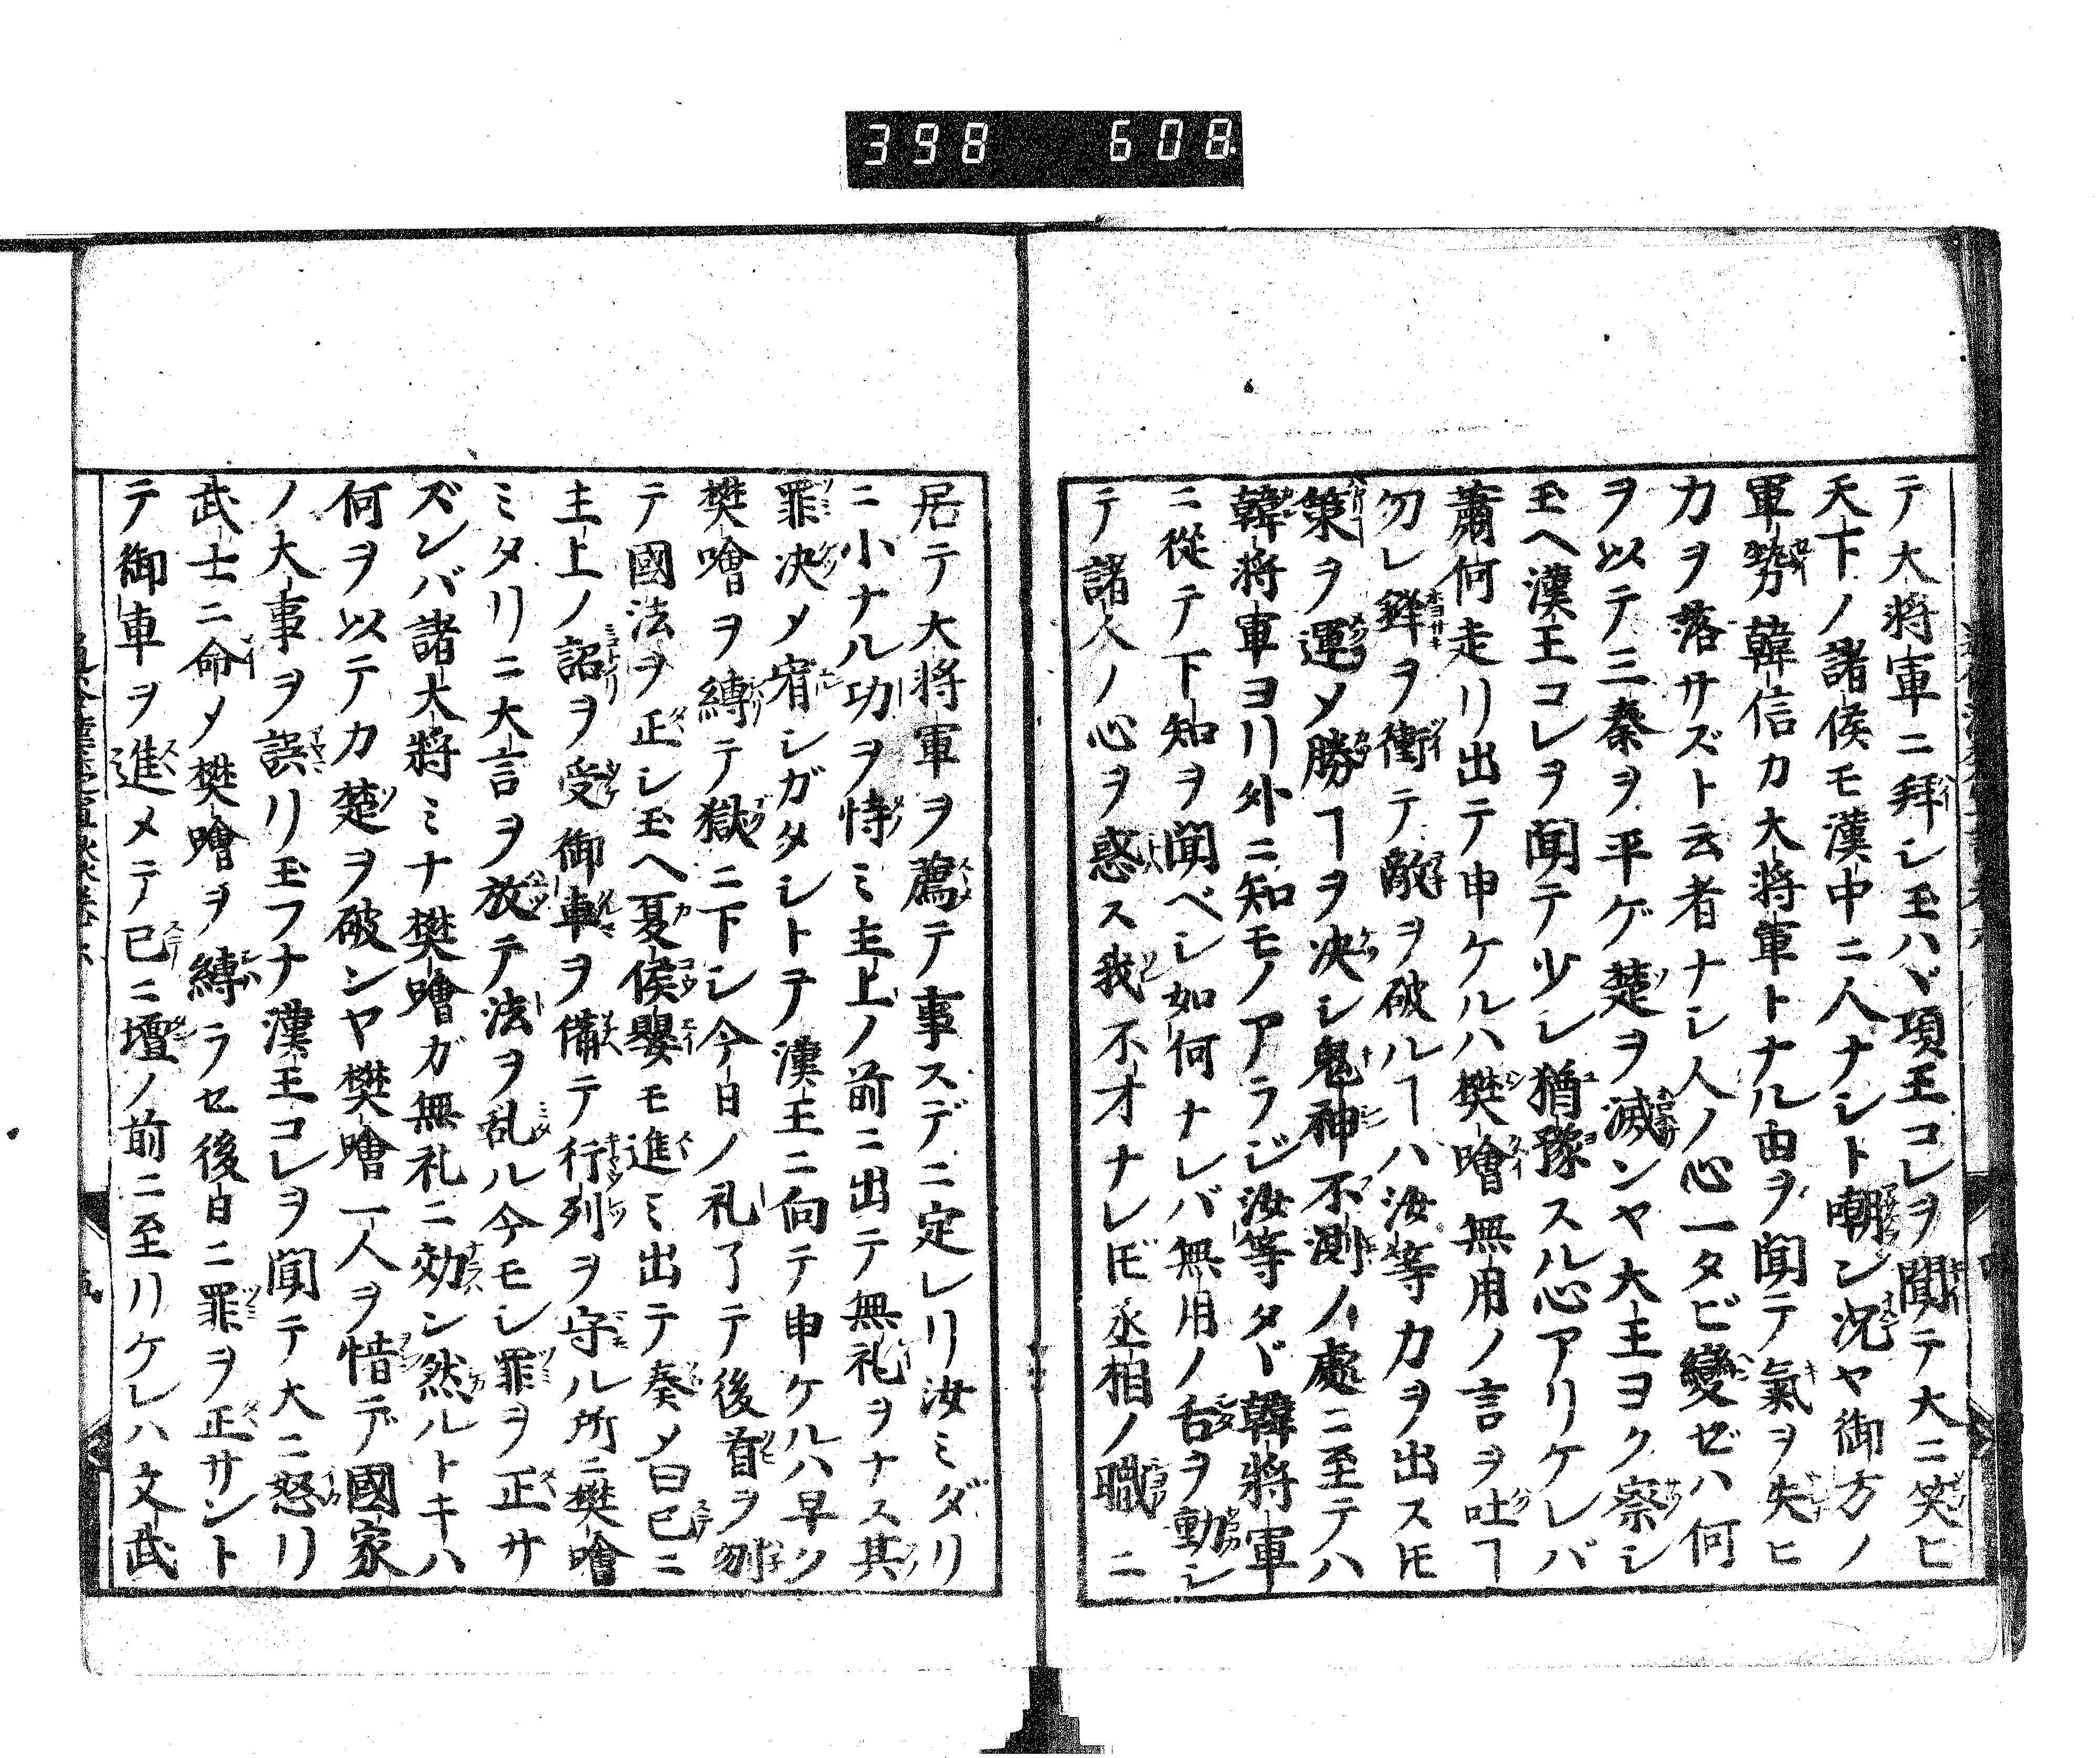 398 608
テ大将軍ニ拜シ玉ハヾ項王コレヲ聞テ大ニ笑ヒ
天下ノ諸侯モ漢中ニ人ナシト嘲ン况ヤ御方ノ
軍勢韓信カ大将軍トナル由ヲ聞テ氣ヲ失ヒ
力ヲ落サズト云者ナシ人ノ心一タビ變ゼハ何
ヲ以テ三秦ヲ平ゲ楚ヲ滅ンヤ大王ヨク察シ
玉ヘ漢王コレヲ聞テ少シ猶豫スル心アリケレバ
蕭何走リ出テ申ケルハ樊噲無用ノ言ヲ吐ヿ
勿レ鋒ヲ衝テ敵ヲ破ルヿハ汝等力ヲ出ス𪜈
策ヲ運メ勝ヿヲ决シ鬼神不測ノ處ニ至テハ
韓将軍ヨリ外ニ知モノアラジ汝等タヾ韓將軍
ニ從テ下知ヲ聞ベシ如何ナレバ無用ノ舌ヲ動シ
テ諸人ノ心ヲ惑ス我不才ナレ𪜈丞相ノ職ニ
居テ大将軍ヲ薦テ事スデニ定レリ汝ミダリ
ニ小ナル功ヲ恃ミ主上ノ前ニ出テ無礼ヲナス其
罪决メ宥シガタシトテ漢王ニ向テ申ケルハ早ク
樊噲ヲ縛テ獄ニ下シ今日ノ礼了テ後首ヲ刎
テ國法ヲ正シ玉ヘ夏侯嬰モ進ミ出テ奏メ曰已ニ
主上ノ詔ヲ受御車ヲ備テ行列ヲ守ル所ニ樊噲
ミタリニ大言ヲ放テ法ヲ乱ル今モシ罪ヲ正サ
ズンバ諸大将ミナ樊噲ガ無礼ニ効ン然ルトキハ
何ヲ以テカ楚ヲ破シヤ樊噲一人ヲ惜デ國家
ノ大事ヲ誤リ玉フナ漢王コレヲ聞テ大ニ怒リ
武士ニ命メ樊噲ヲ縛ラセ後日ニ罪ヲ正サント
テ御車ヲ進メテ已ニ壇ノ前ニ至リケレハ文武